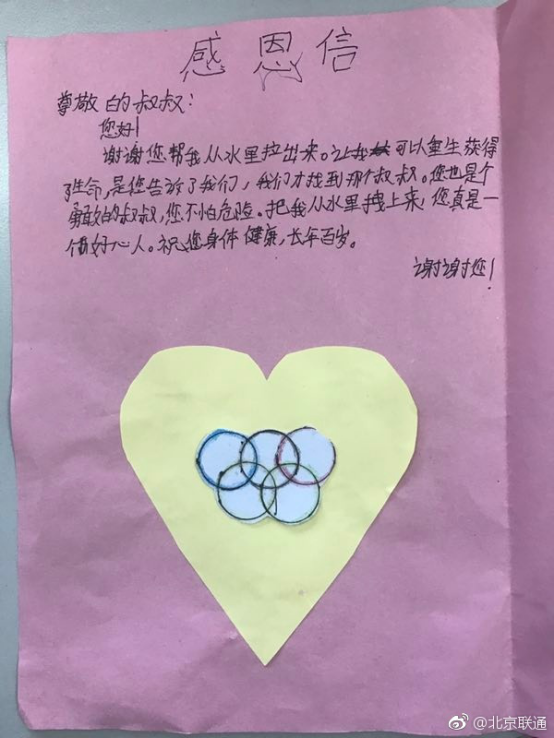 感恩信
尊敬的叔叔:
您好!
谢谢您帮我从水里拉出来。让我可以重生获得
了生命,是您告诉了我们,我们才找到那个叔叔。您也是个
勇敢的叔叔,您不怕危险。把我从水里拽上来,您真是一
个好心人。祝您身体健康,长年百岁。
谢谢您!
@北京联通